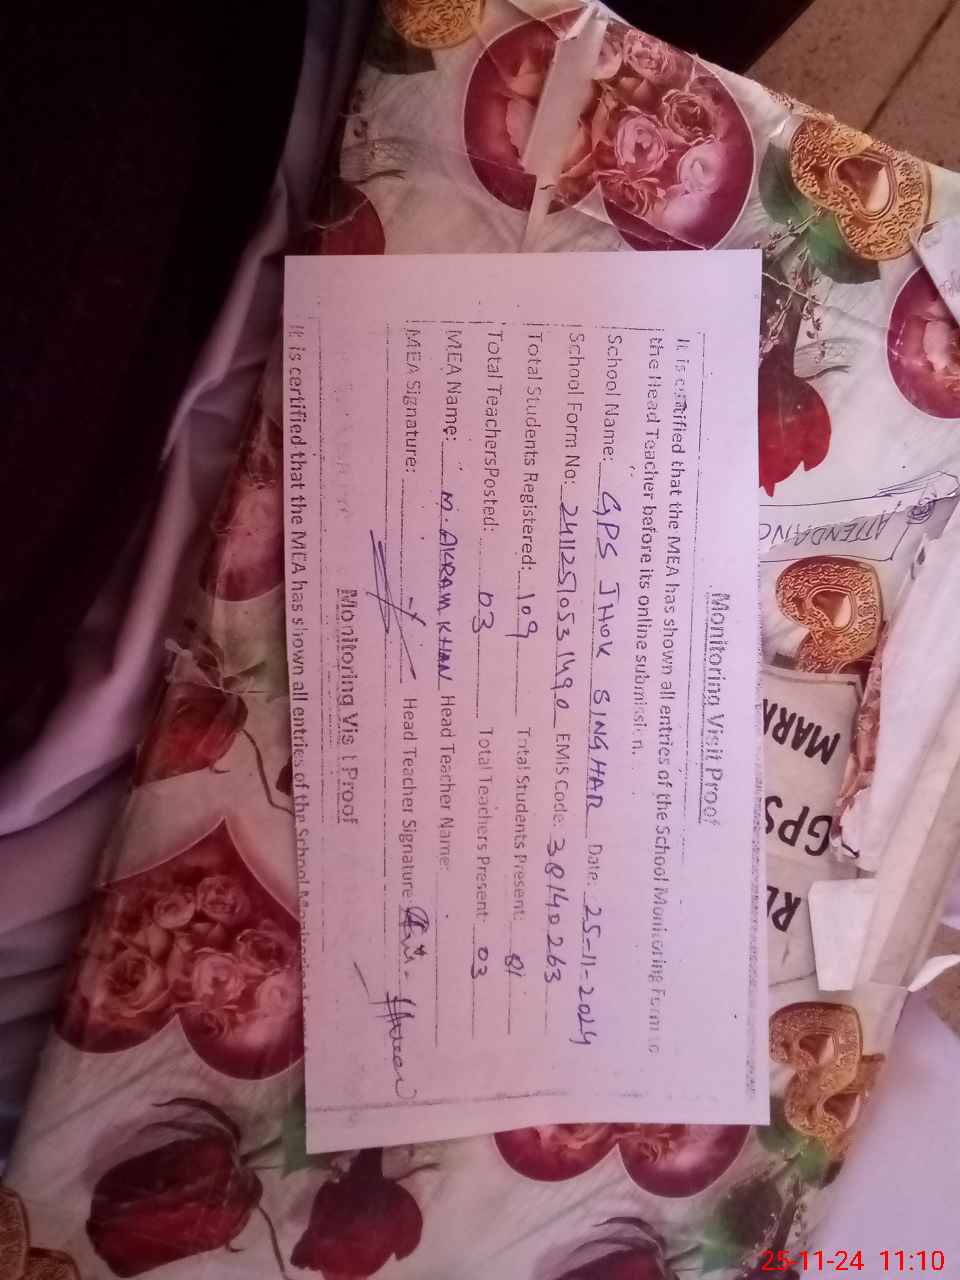 Monitoring Visit Proof
It is certified that the MEA has shown all entries of the School Monitoring Form to
the Head Teacher before its online submission.
School Name: GPS JHOK SINGHAR Date: 25-11-2024
School Form No: 24112510531490 EMIS Code: 38140263
Total Students Registered: 109 Total Students Present: 81
Total TeachersPosted: 03 Total Teachers Present: 03
MEA Name: M. AKRAM KHAN Head Teacher Name:
MEA Signature: Head Teacher Signature
Monitoring Visit Proof
It is certified that the MEA has shown all entries of the School Monitoring
ATTENDANC
MARK
GPS
25-11-24 11:10